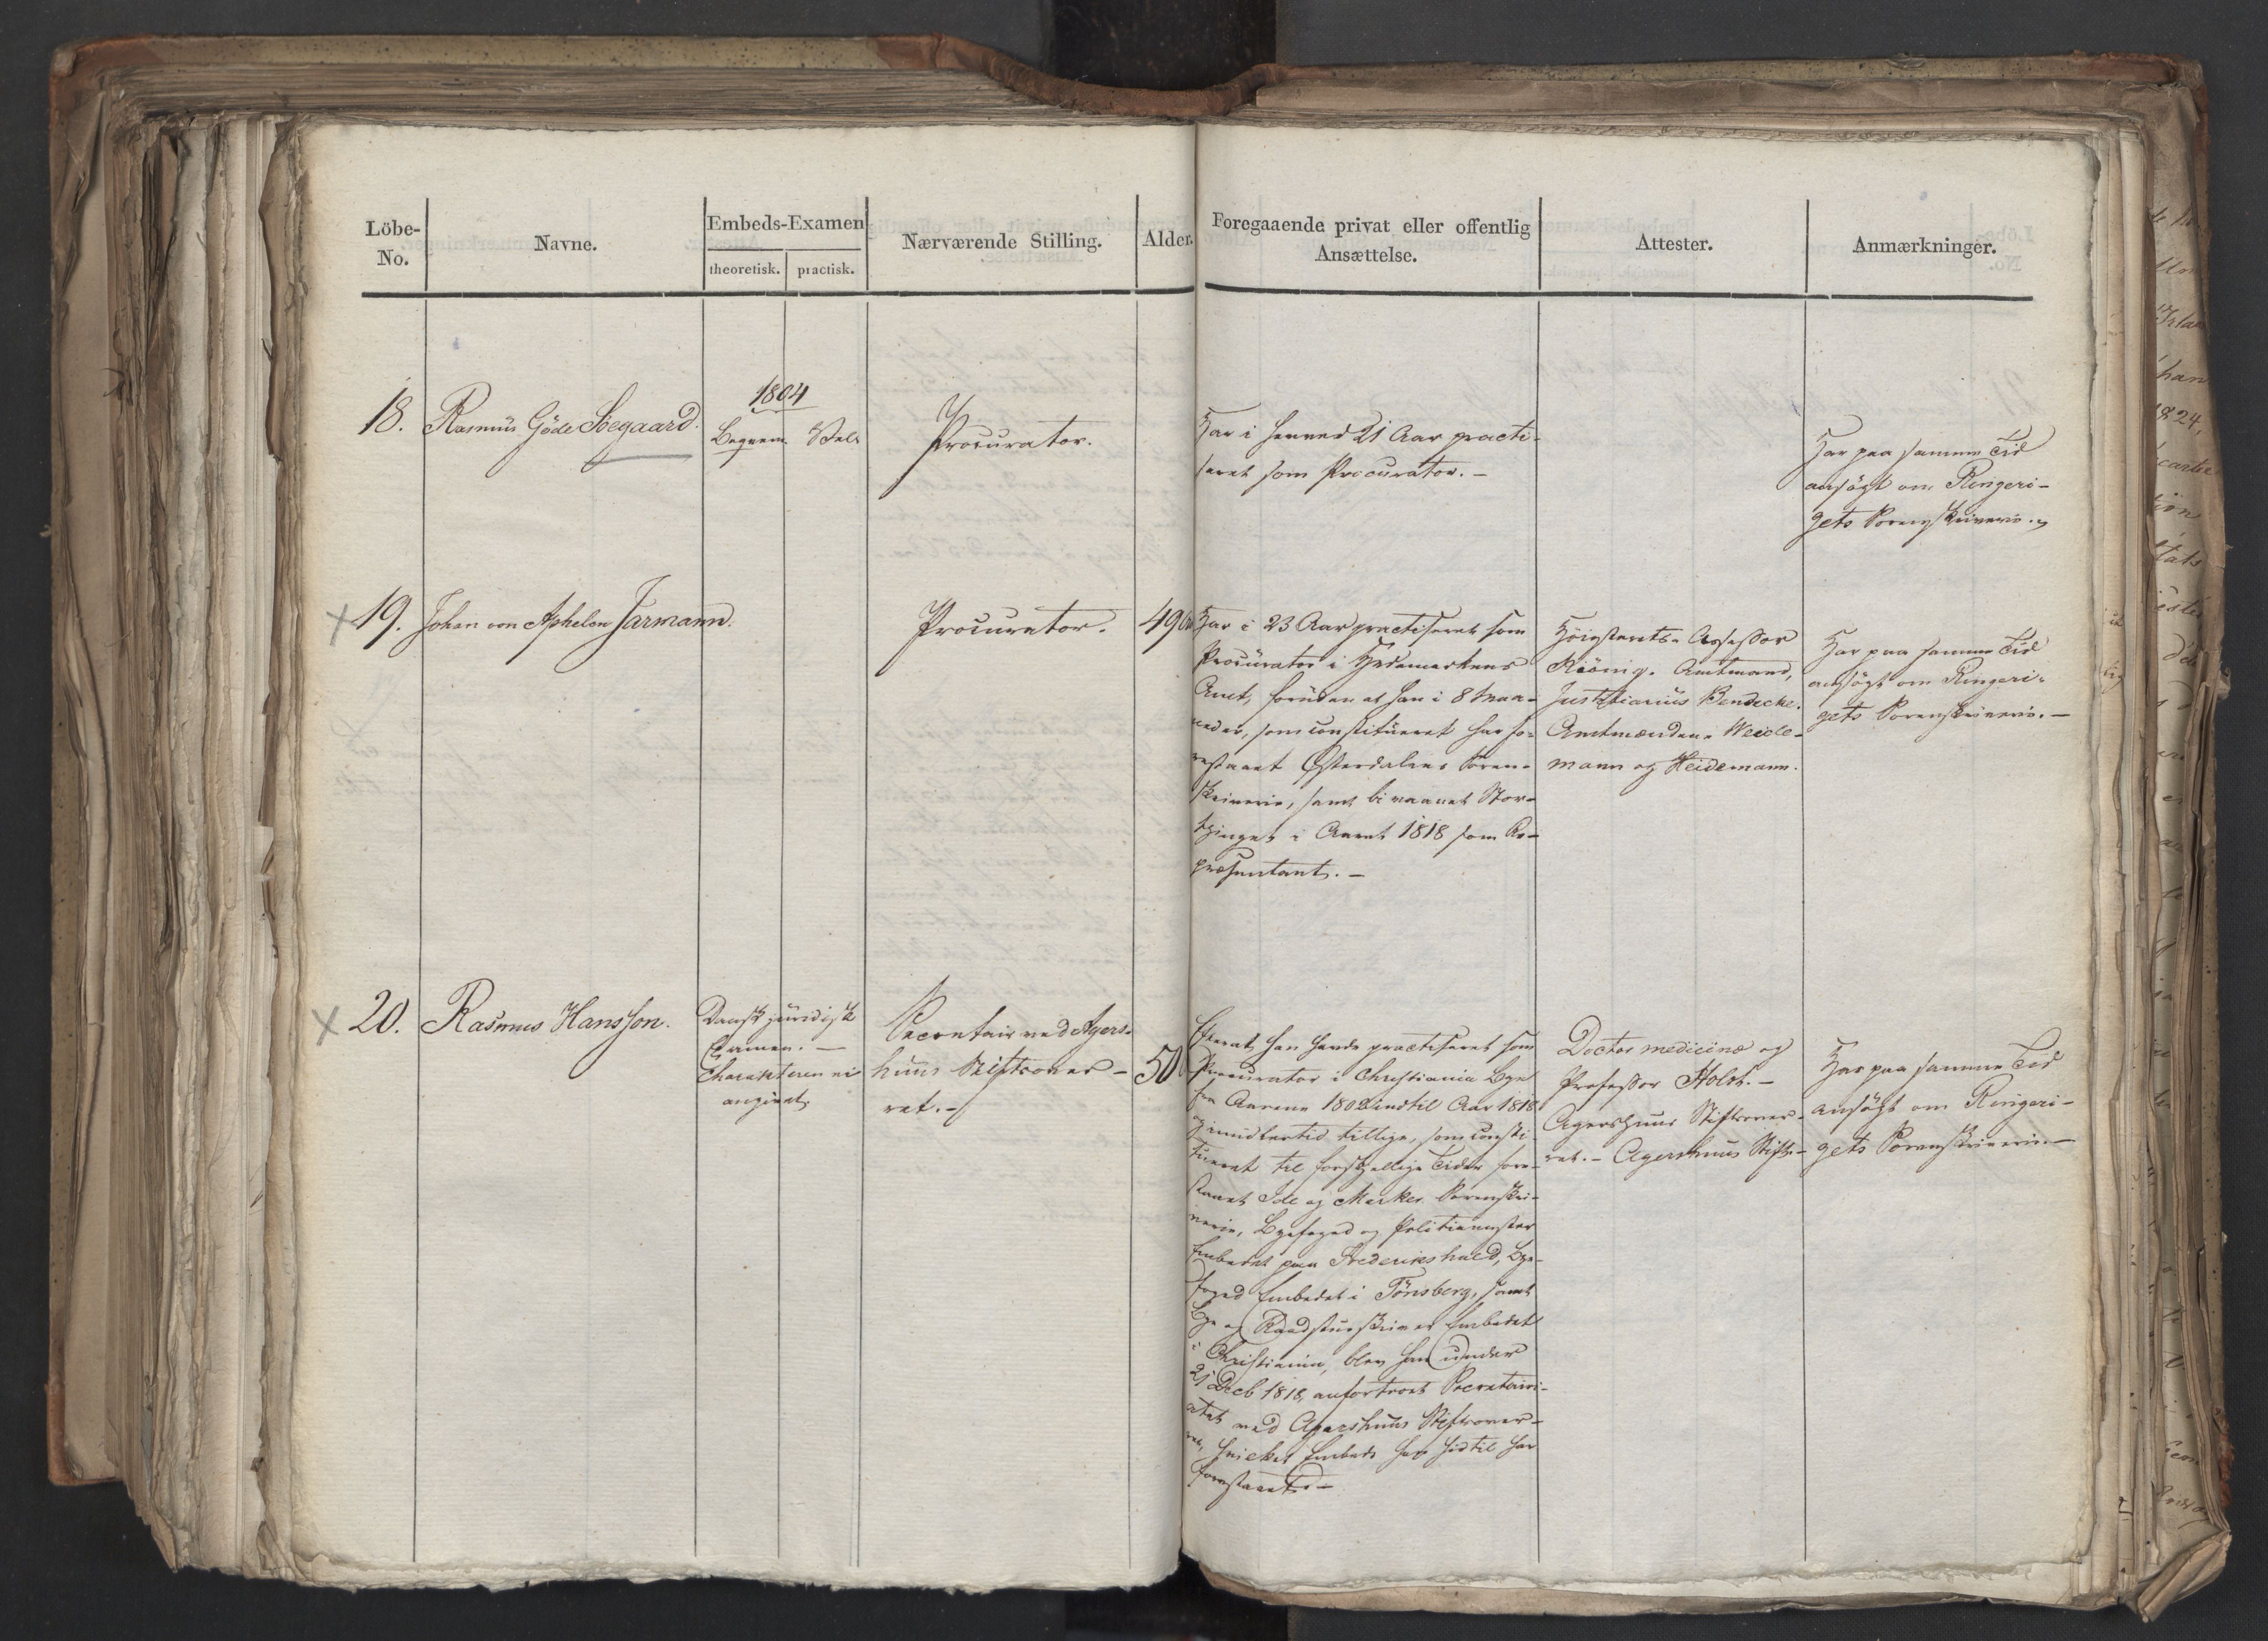 Löbe-
No.
Navne.
Embeds-Examen
theoretisk. practisk.
Nærværende Stilling.
Alder.
Foregaaende privat eller offentlig
Ansættelse.
Attester.
Anmærkninger.
18. Rasmus Göde Söegaard.
1804
Beqvem. Vel.
Procurator.
Har i henved 21 Aar practi-
seret som Procurator. -
Har paa samme Tid
ansögt om Ringeri-
gets Sorenskriverie.
19. Johan von Aphelen Jarmann.
Procurator.
49
Har i 23 Aar practiseret som
Procurator i Hedemarkens
Amt, foruden at han i 8 Maa-
neder, som constitueret har fo-
restaaet Østerdalens Soren-
skriverie, samt bivaanet Stor-
thinget i Aaret 1818 som Re-
præsentant. -
Höiesterets-Assessor
Amtmand,
Justitiarius Bendeke.
Amtmændene Weide-
mann og Heidemann.
Har paa samme Tid
ansögt om Ringeri-
gets Sorenskriverie. -
20. Rasmus Hansson.
Dansk juridisk
Examen. -
Charakteren ei
angivet.
Secretair ved Agers-
huus Stiftsover-
ret. -
50
Efterat han havde practiseret som
Procurator i Christiania Bye
fra Aarene 1802 indtil Aar 1818
og imidlertid tillige, som consti-
tueret til forskjellige Tider fore-
staaet Ide og Marker Sorenskri-
verie, Byefoged og Politiemester
Embedet paa Frederikshald, Bye-
foged Embedet i Tönsberg, samt
Bye og Raadstueskriver Embedet
i Christiania, blev han under
21 Decb 1818 anfortroet Secretairi-
atet ved Agershuus Stiftsover-
ret, hvilket Embede han hidtil har
forestaaet. -
Doctor medicinæ og
Professor Holst. -
Agershuus Stiftsover-
ret. - Agershuus Stifts-
Har paa samme Tid
ansögt om Ringeri-
gets Sorenskriverie -